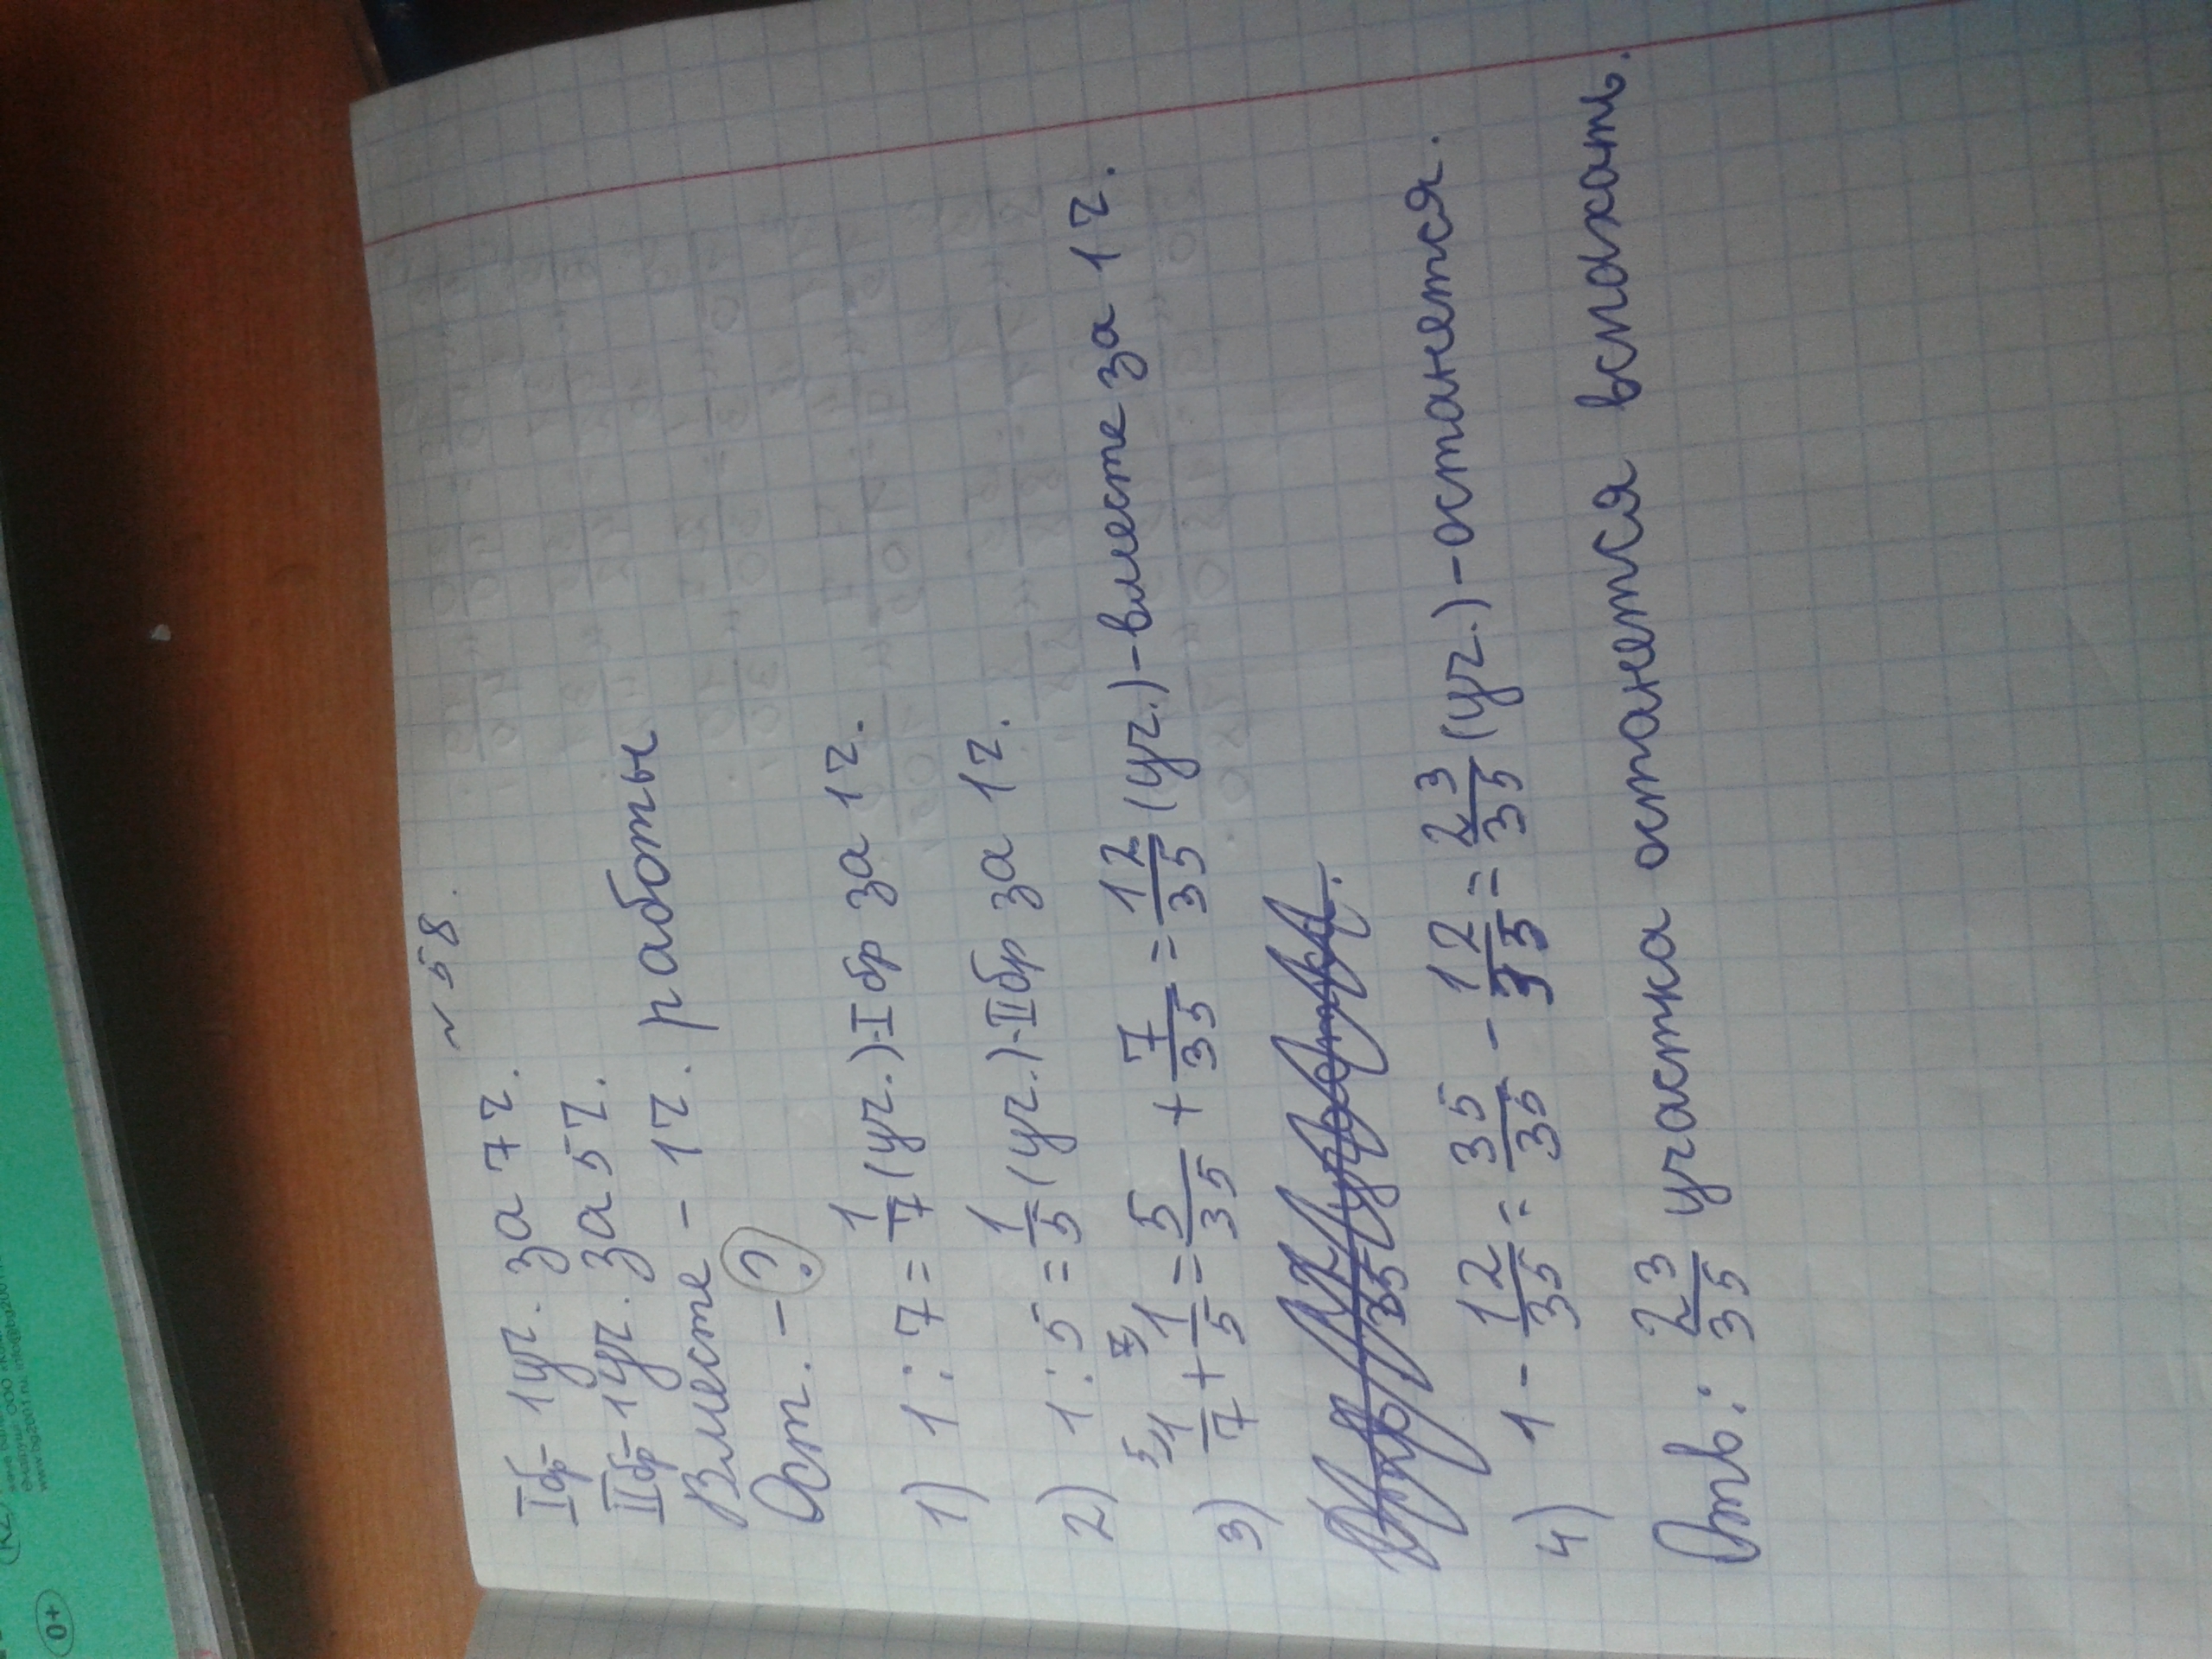 № 58.
I бр - 1 уч. за 7 ч.
II бр - 1 уч. за 5 ч.
Вместе - 1 ч. работы
Ост. - ?
1) 1 : 7 = 1/7 (уч.) - I бр за 1 ч.
2) 1 : 5 = 1/5 (уч.) - II бр за 1 ч.
3) 1/7 + 1/5 = 5/35 + 7/35 = 12/35 (уч.) - вместе за 1 ч.
4) 1 - 12/35 = 35/35 - 12/35 = 23/35 (уч.) - останется.
Отв: 23/35 участка останется вспахать.
0+